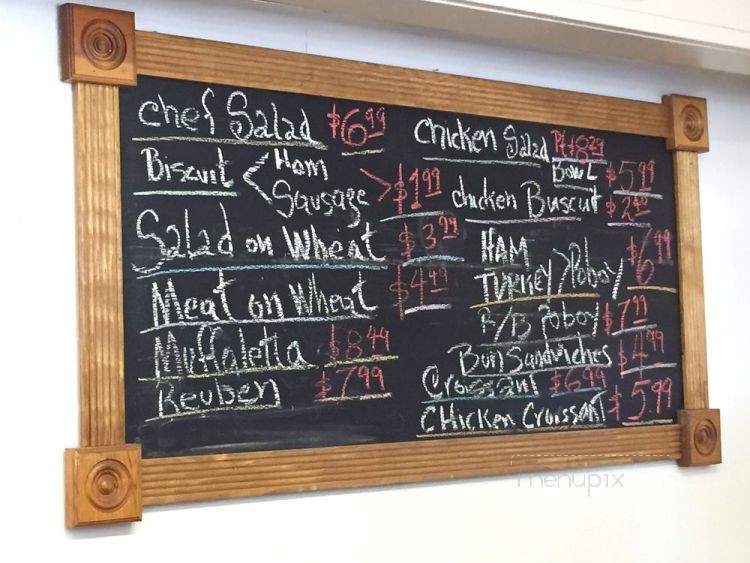 chef Salad $6.99
Biscuit < Ham
Sausage > $1.99
Salad on Wheat $3.99
Meat on Wheat $4.49
Muffaletta $8.49
Reuben $7.99
Chicken Salad Pt $8.29
Bowl $5.99
chicken Buscuit
HAM
TURKEY > Poboy $6.99
R/B Poboy $7.99
Bun Sandwiches $4.99
Croissant $6.99
CHicken Croissant $5.99
menupix